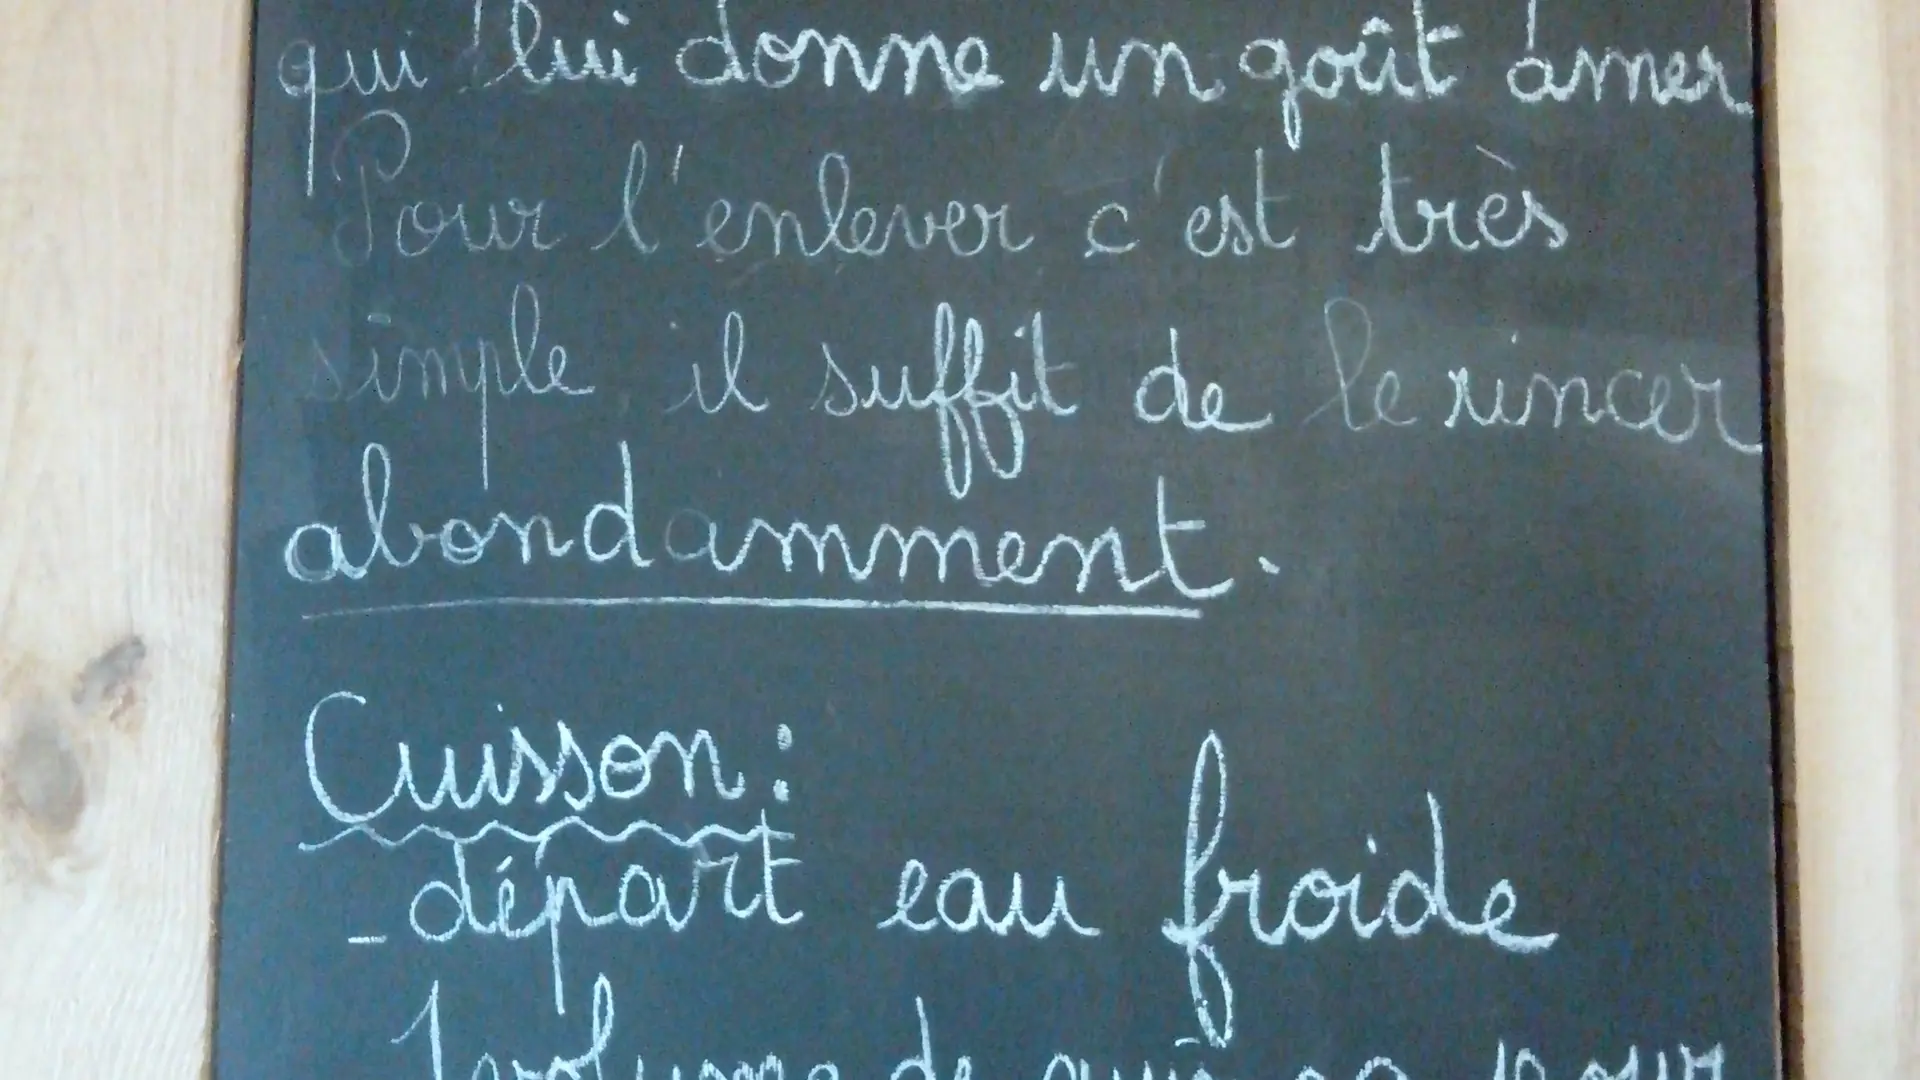 qui lui donne un goût amer
Pour l'enlever c'est très
simple, il suffit de le rincer
abondamment.
Cuisson :
- départ eau froide
1 volume de quinoa pour